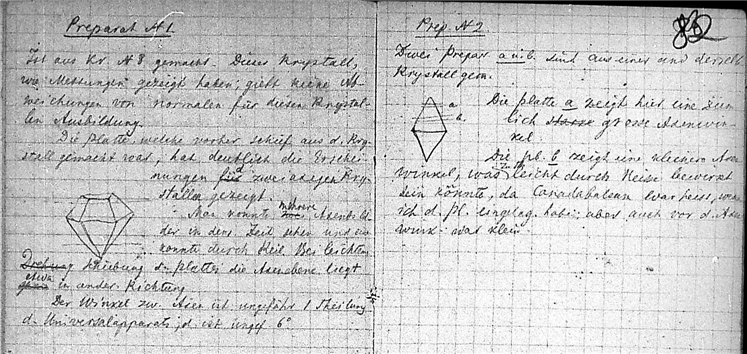 Preparat № 1
Ist aus Kr. № 8 gemacht. Dieser Krystall,
wo Messungen gezeigt haben, giebt keine Ab-
weichungen von normalen für diesen Krystal-
len Ausbildung.
Die Platte, welche vorher schief aus d. Kry-
stall gemacht war, hat deutlich die Erschei-
nungen für d zweiaxigen Kry-
stalle gezeigt.
Man konnte mehrere Axenbil-
der in ders. Zeit sehen und
konnte durch Keil. Bei leichten
Drehung Schiebung d. Platte die Axenebene liegt
etwa in ander. Richtung
Der Winkel zw. Axen ist ungefähr 1 Theilung
d. Universalapparats, d. ist ungef 6°
82
Prep. № 2
Zwei Prepar a u. b. sind aus einer und derselb
Krystall gem.
a
b.
Die Platte a zeigt hier eine ziem
lich starke grosse Axenwin-
kel
Die Pl. b zeigt eine kleinere Axe
winkel, was leicht durch
sein könnte, da Canadabalsam war heiss, wenn
ich d. Pl. eingelag. habe; aber auch vor d. Axen
wink. war klein